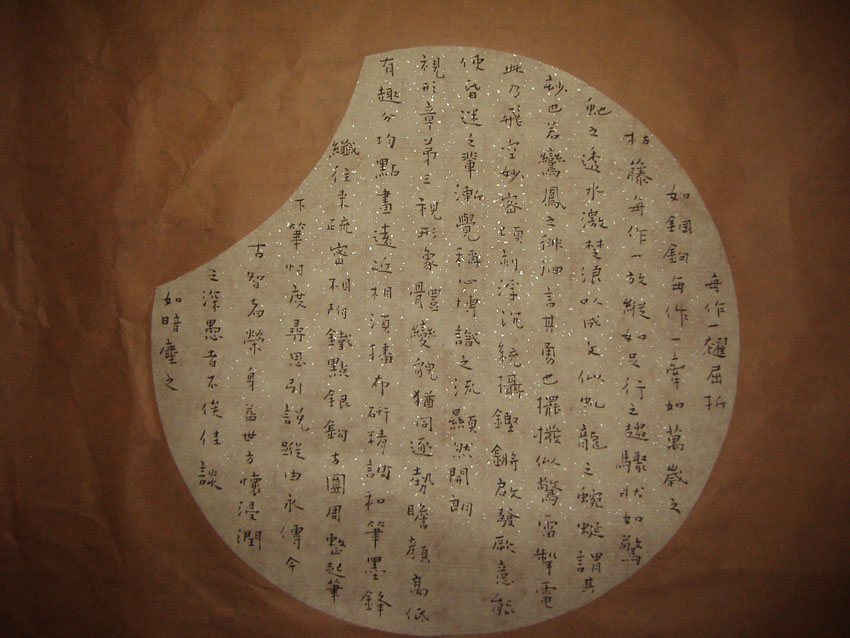 每作一趯屈折
如鋼鉤每作一牽如萬歲之
枯藤每作一放縱如足行之趨驟狀如驚
虵之透水激楚浪以成文似虬龍之蜿蜒謂其
妙也若鸞鳳之徘徊言其勇也擺撥似驚雷掣電
此乃飛空妙密頃刻浮沉統攝鏗鏘啟發厥意能
使昏迷之輩漸覺稱心博識之流顯然開朗
視形章第三視形象骨體變貌猶同逐勢瞻顏高低
有趣分均點畫遠近相須播布研精調和筆墨鋒
纖往來疏密相附鐵點銀鉤方圓周整起筆
下筆忖度尋思引說蹤由永傳今
古智者榮身益世方懷浸潤
之深愚者不俟佳談
如暗塵之